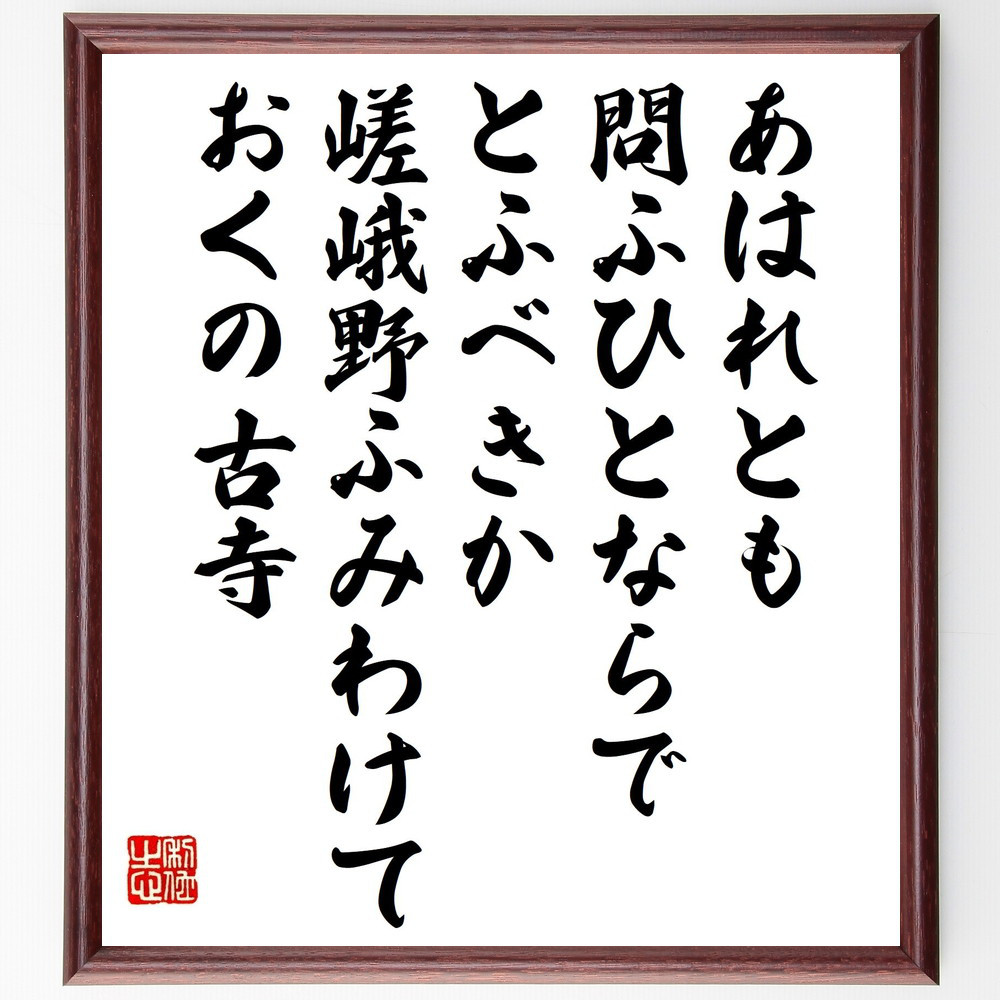 あはれとも
問ふひとならで
とふべきか
嵯峨野ふみわけて
おくの古寺